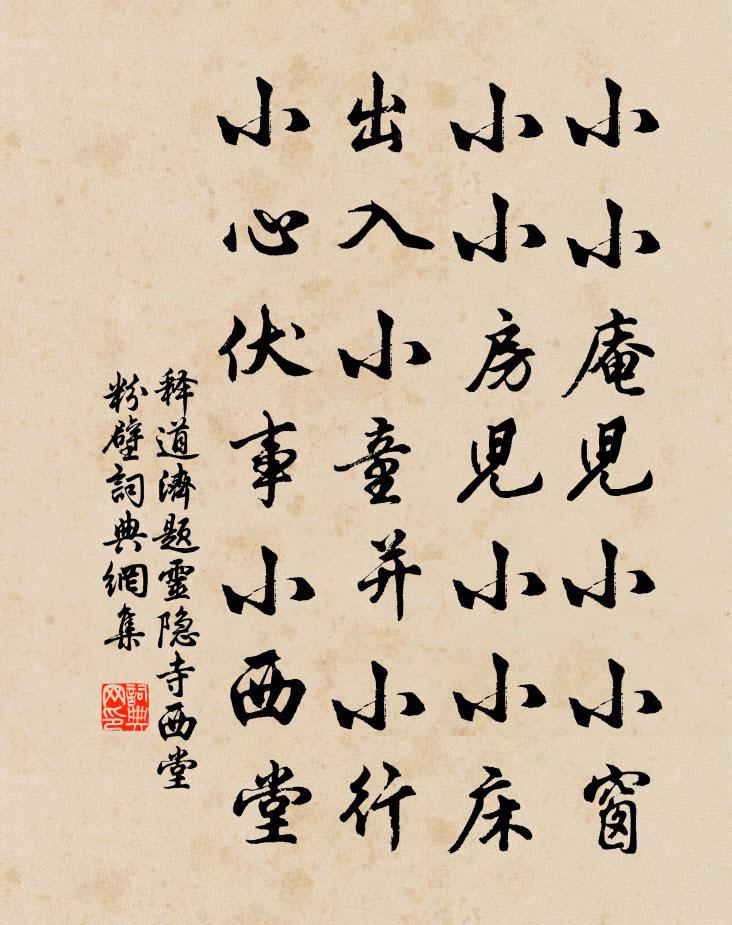 小小庵児小小窗
小小房児小小床
出入小童并小行
小心伏事小西堂
释道濟題靈隐寺西堂
粉壁詞典網集
詞典网印